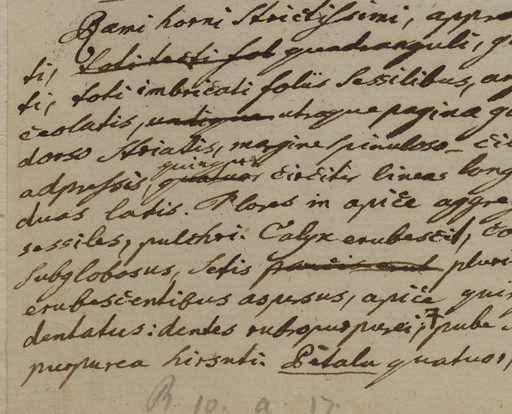 Rami horni strictissimi, appre
ti, toti tecti fol quadranguli, q
ti, toti imbricati foliis sessilibus, an
ceolatis, undique utroque pagina g
dorso striatis, margine spinuloso-cil
quinque
adpressis, quatuor circiter lineas long
duas latis. Flores in apice aggre
sessiles, pulchri. Calyx erubescit, co
subglobosus, setis pluri
erubescentibus aspersus, apice qui
dentatus: dentes rubropurpurei, pube
purpurea hirsuti. Petala quatuor,
R. 10. a. 17.